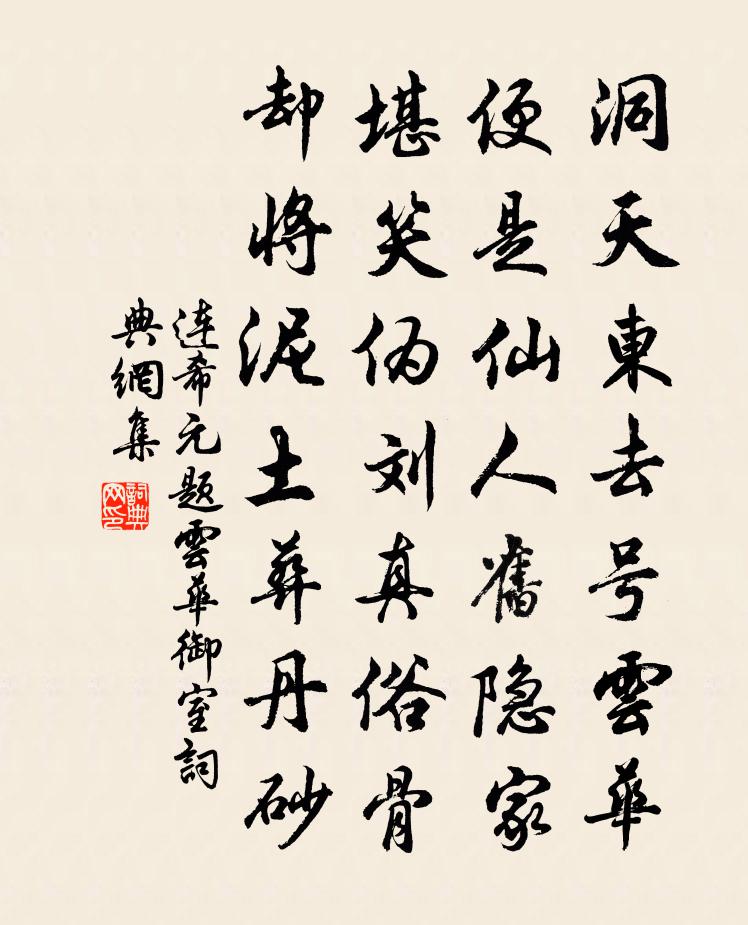 洞天東去号雲華
便是仙人舊隐家
堪笑偽刘真俗骨
却將泥土葬丹砂
連希元題雲華御室詞
典網集
詞典
网印